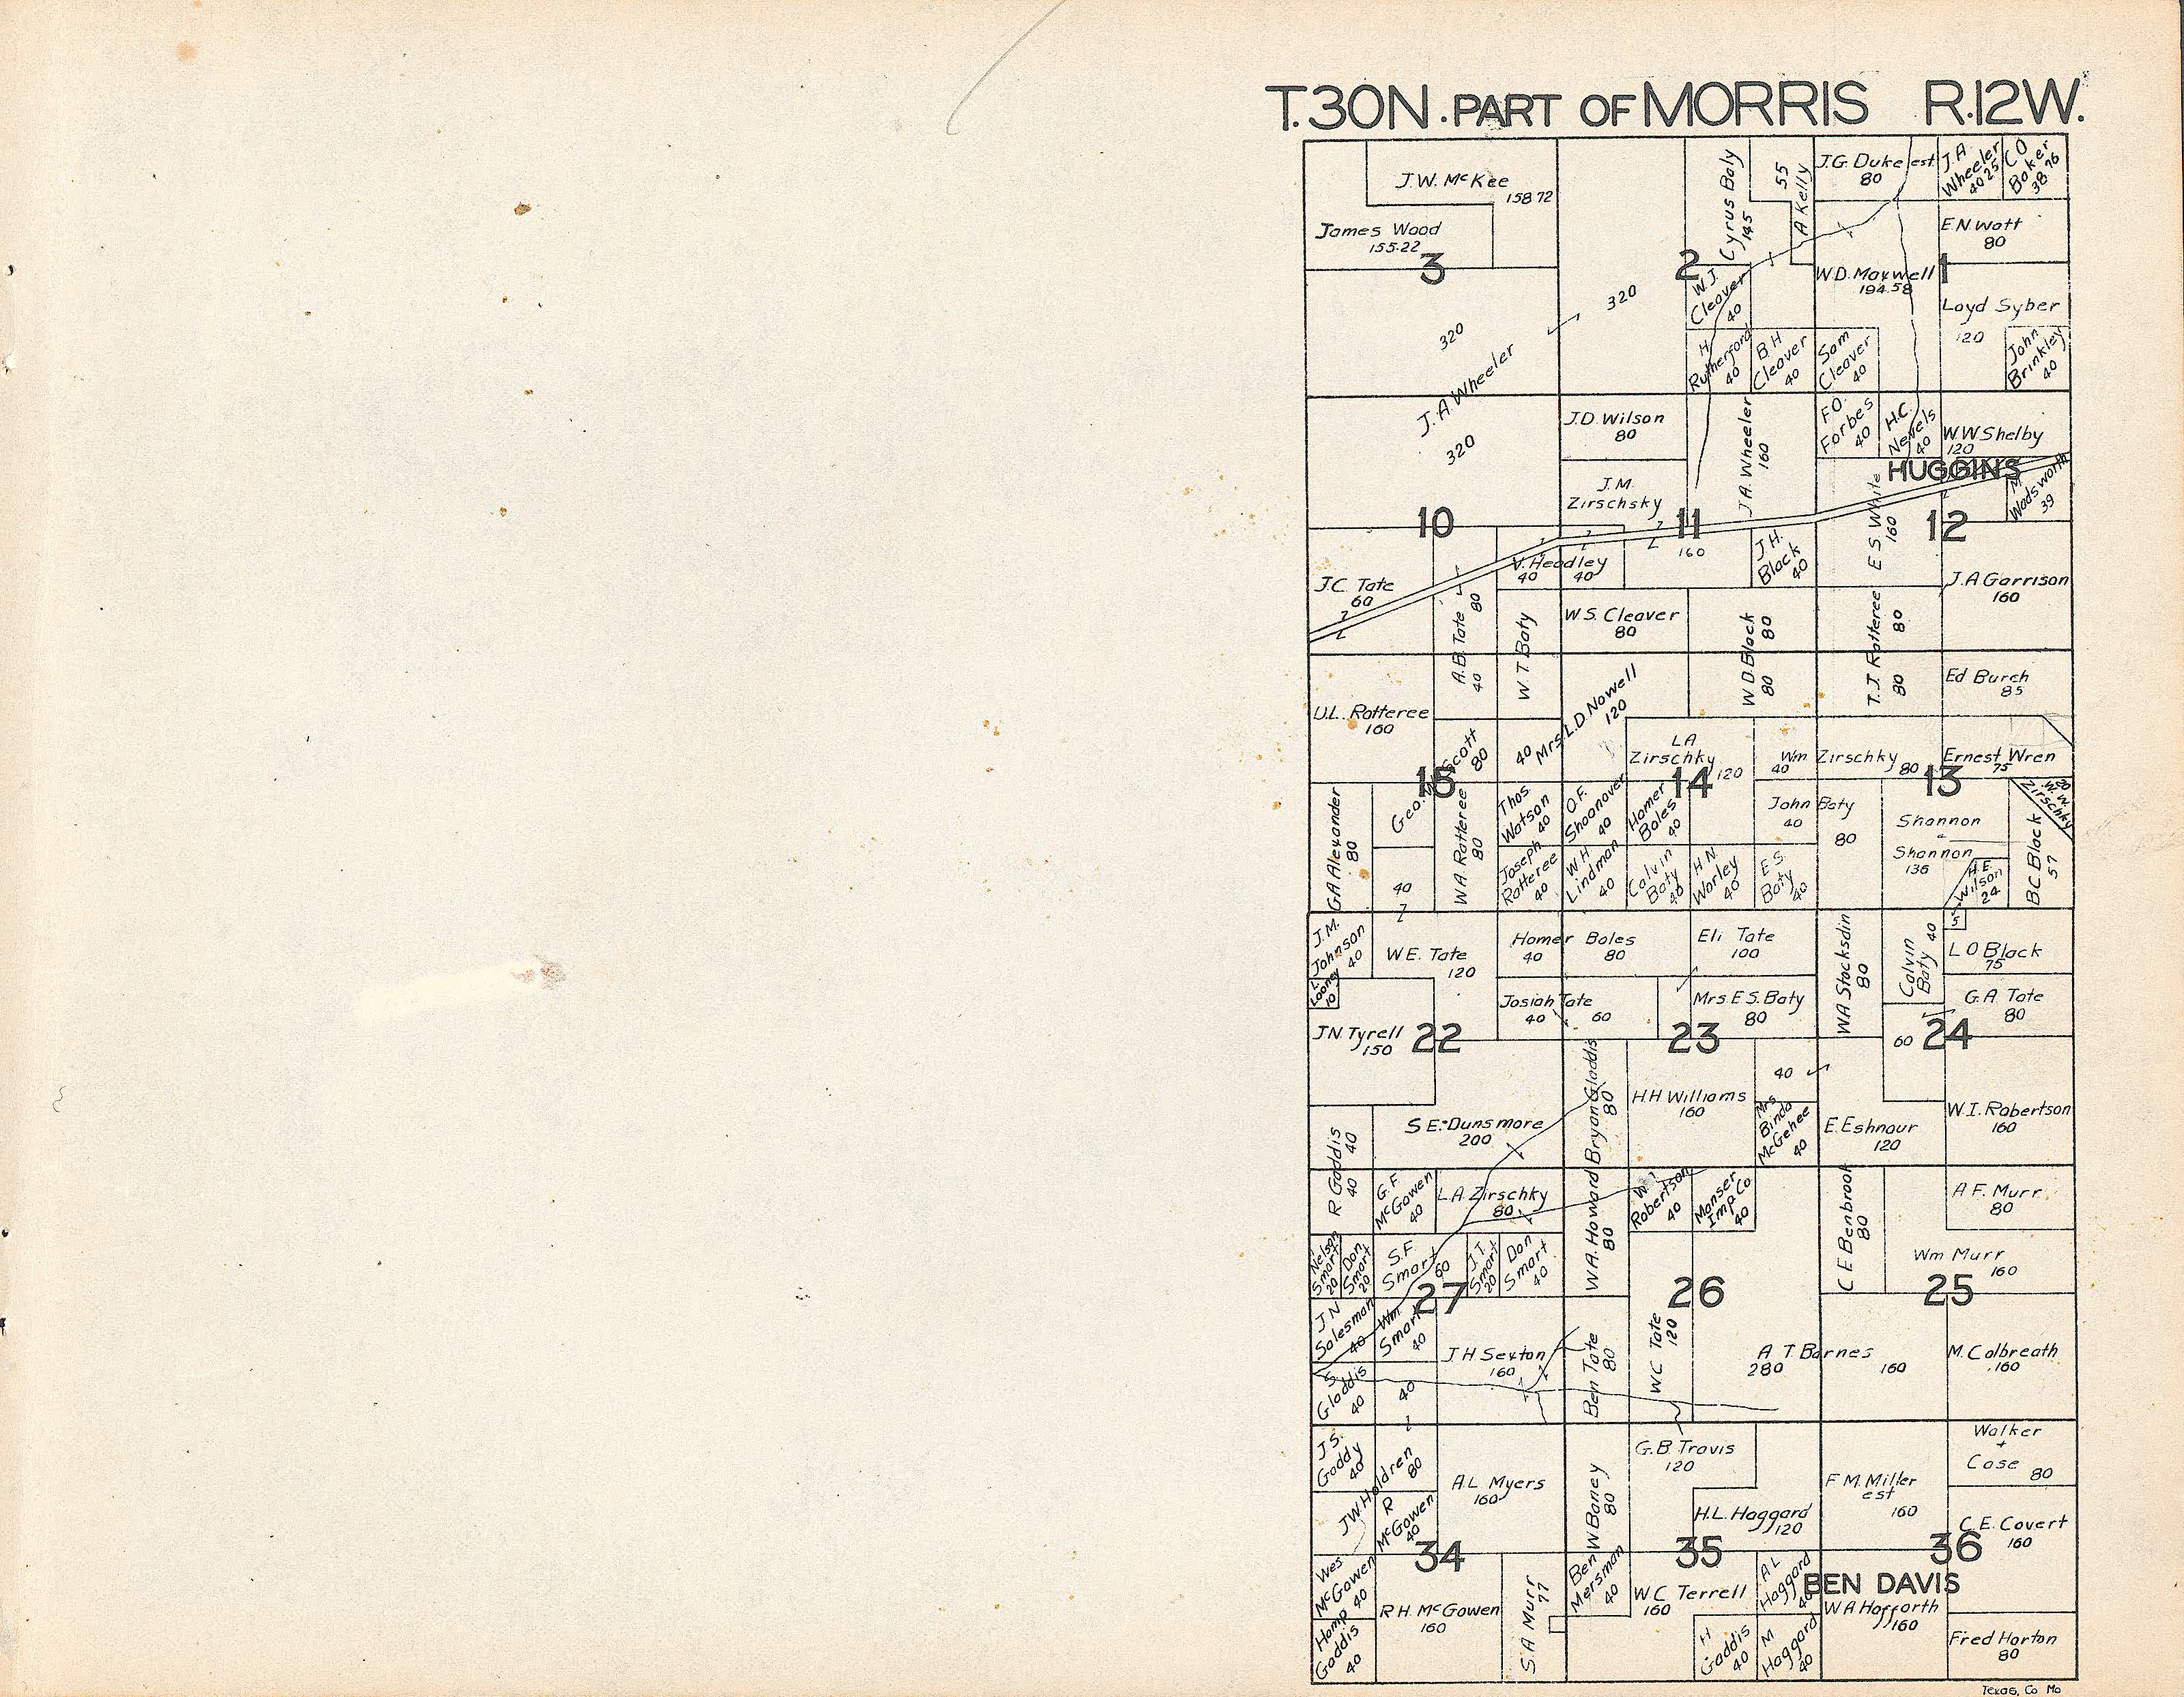 T.30N. PART OF MORRIS R.12W.
J.W. McKee
158 72
James Wood
155.22
3
320
J.A. Wheeler
320
320
2
Cyrus Baly
145
55
A Kelly
W.J.
Cleaver
40
H
Rutherford
40
B H
Cleaver
40
J.G. Duke est
80
J.A
Wheeler
40 25
C O
Baker
38 76
E.N. Watt
80
W.D. Maxwell
194.58
1
Loyd Syber
120
John
Brinkley
40
Sam
Cleaver
40
10
J.C. Tate
60
A.B. Tate
80
40
V. Headley
40
40
W.T. Baty
J.D. Wilson
80
J.M.
Zirschsky
J.A. Wheeler
160
11
160
J.H.
Black
40
W.S. Cleaver
80
W D. Black
80
80
F.O.
Forbes
40
H.C.
Nevels
40
W.W. Shelby
120
HUGGINS
M.
Wadsworth
39
E S White
160
12
J.A Garrison
160
T.J. Ratteree
80
80
U.L. Ratteree
160
Geo. W Scott
80
40
15
G.A Alexander
80
W A Ratteree
80
40
Thos.
Watson
40
Joseph
Ratteree
40
Mrs. L.D. Nowell
120
L.A
Zirschky
120
14
O.F.
Shoonover
40
Homer
Boles
40
W H
Lindman
40
Calvin
Baty
40
H N
Worley
40
E S
Baty
40
Wm Zirschky
40
80
John Baty
40
80
Ed Burch
85
Ernest Wren
75
13
20
W. W.
Zirschky
Shannon
Shannon
136
H.E.
Wilson
24
B C Black
57
J.M.
Johnson
40
L.
Looney
10
W E. Tate
120
J.N. Tyrell
150
22
Homer Boles
40
80
Josiah Tate
40
60
Eli Tate
100
Mrs E.S. Baty
80
23
W.A Stocksdin
80
Calvin
Baty
40
5
L O Black
75
G.A. Tate
80
60
24
S E. Dunsmore
200
R Gaddis
40
40
Bryan Gladdis
80
H H Williams
160
40
Mrs
Binda
McGehee
40
E. Eshnaur
120
W.I. Robertson
160
G.F
McGowen
40
L.A. Zirschky
80
Nelson
Smart
20
Don
Smart
20
S.F.
Smart
60
J.T.
Smart
20
Don
Smart
40
27
J N
Salesman
40
Wm
Smart
40
S
Gladdis
40
40
J H Sexton
160
W A. Howard
80
W I
Robertson
40
Manser
Imp Co
40
26
Ben Tate
80
W C Tate
120
A. T Barnes
280
160
C E Benbrook
80
A F. Murr
80
Wm Murr
160
25
M. Colbreath
160
J.S.
Gaddy
40
J.W. Holdren
80
R
McGowen
40
A.L Myers
160
34
Wes
McGowen
40
Hamp
Gaddis
40
R.H. McGowen
160
S.A Murr
77
W Baney
80
G.B. Travis
120
H.L. Haggard
120
35
Ben
Mersman
40
W.C Terrell
160
A L
Haggard
40
H
Gaddis
40
M
Haggard
40
F M. Miller
est
160
Walker
+
Case 80
C.E. Covert
160
36
BEN DAVIS
W A Hofforth
160
Fred Horton
80
Texas, Co Mo